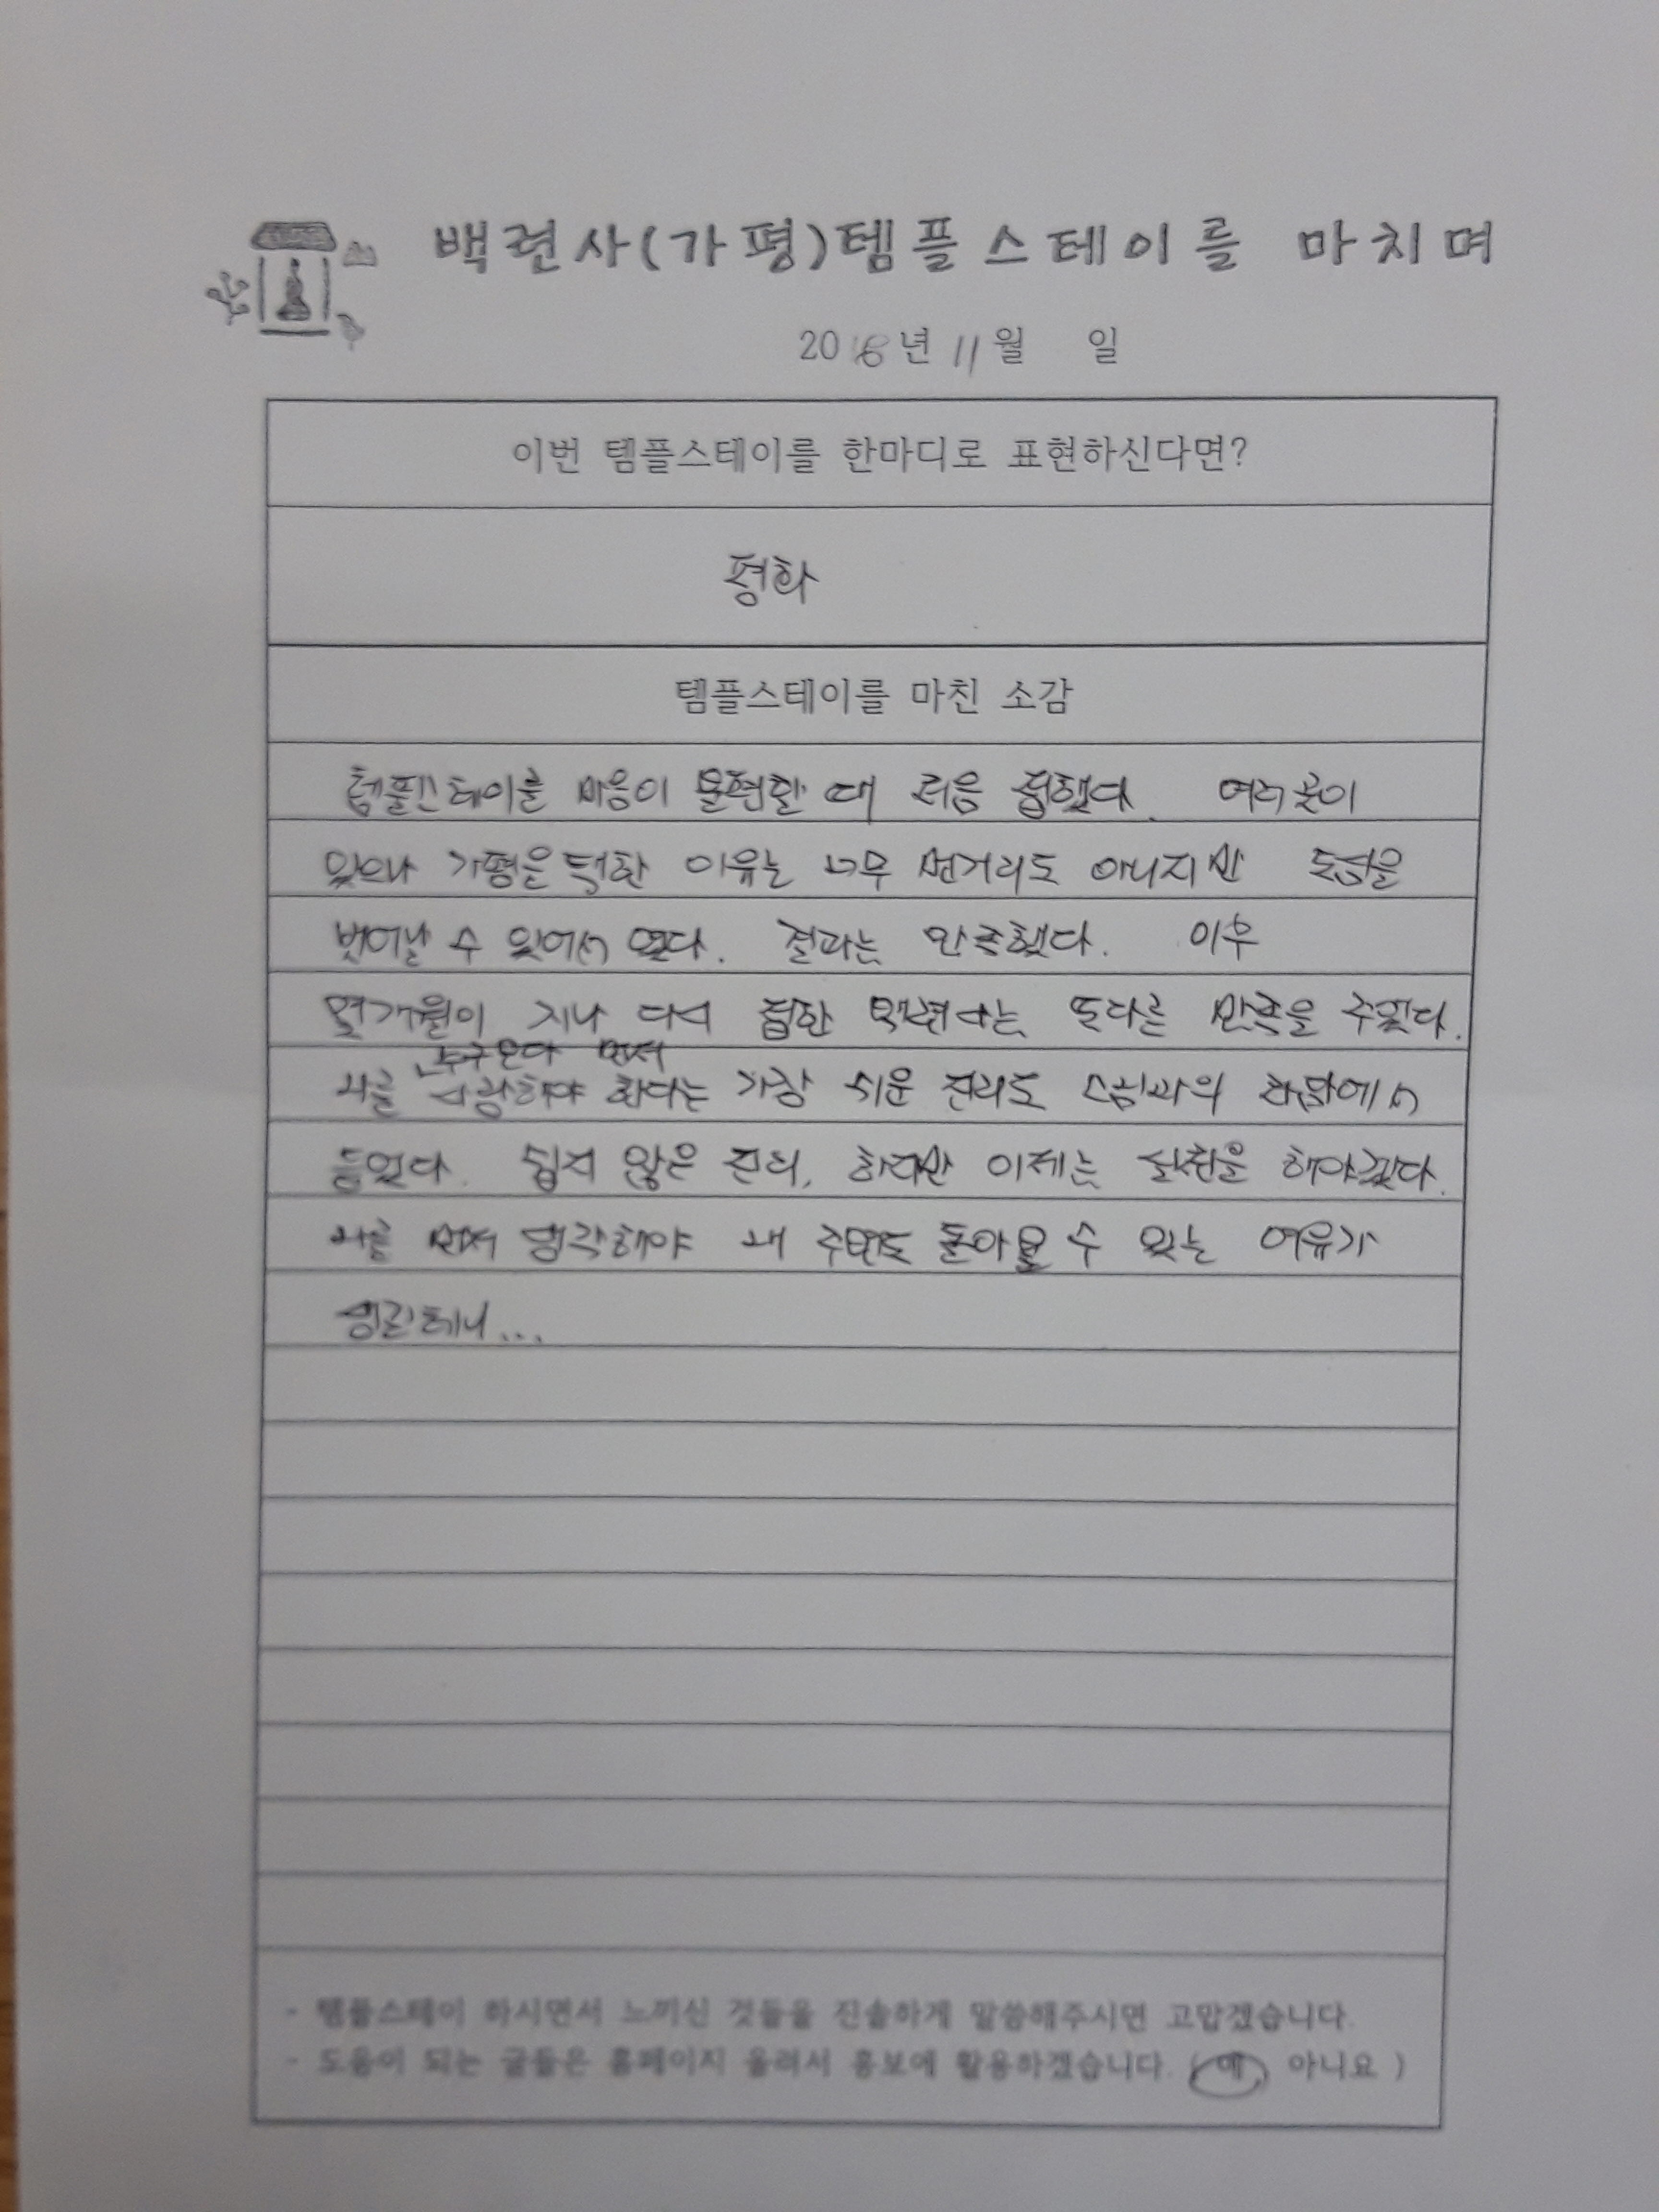 백련사(가평)템플스테이를 마치며
2018년 11월 일
이번 템플스테이를 한마디로 표현하신다면?
평화
템플스테이를 마친 소감
템플스테이를 마음이 불편할 때 처음 접했다. 여러 곳이
있으나 가평을 택한 이유는 너무 먼거리도 아니지만 도심을
벗어날 수 있어서 였다. 결과는 만족했다. 이후
몇개월이 지나 다시 접한 백련사는 또다른 만족을 주었다.
누구보다 먼저
나를 사랑해야 한다는 가장 쉬운 진리도 스님과의 차담에서
들었다. 쉽지 않은 진리, 하지만 이제는 실천을 해야겠다.
나를 먼저 생각해야 내 주변도 돌아볼 수 있는 여유가
생길테니...
- 템플스테이 하시면서 느끼신 것들을 진솔하게 말씀해주시면 고맙겠습니다.
- 도움이 되는 글들은 홈페이지 올려서 홍보에 활용하겠습니다. ( 예, 아니요 )